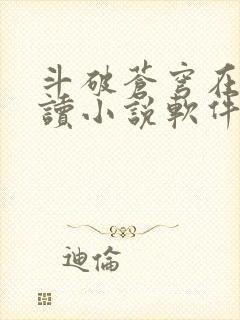 斗破蒼穹在
讀小說軟件
迪倫